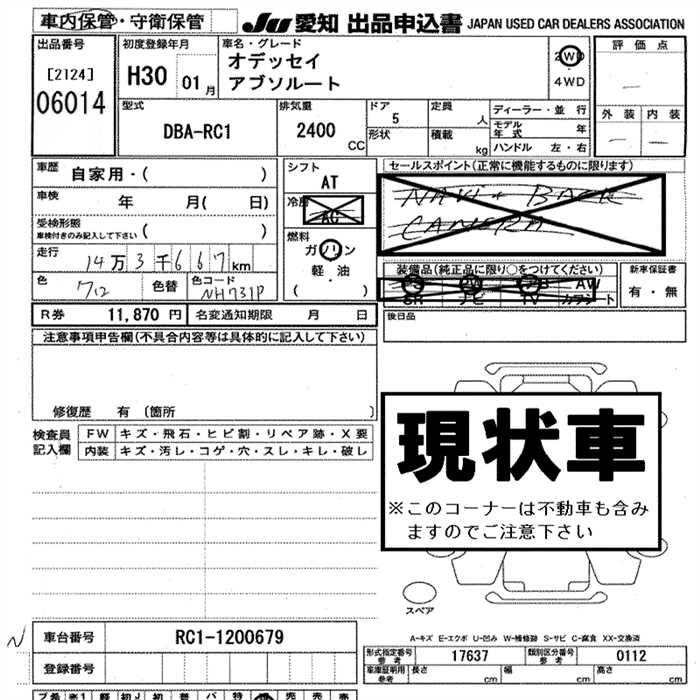 車内保管・守衛保管
JU 愛知 出品申込書 JAPAN USED CAR DEALERS ASSOCIATION
出品番号
[2124]
06014
初度登録年月
H30 01月
車名・グレード
オデッセイ
アブソルート
2WD
4WD
評価点
外装 内装
型式
DBA-RC1
排気量
2400 CC
ドア
5
形状
定員
人
積載
kg
ディーラー・並行
モデル年式 年
ハンドル 左・右
車歴
自家用・( )
車検
年 月( 日)
受検形態
車検付きのみ記入して下さい ( )
走行
14万3千667km
色
クロ
色替
色コード
NH731P
シフト
AT
冷房
AC
燃料
ガソリン
軽・油
( )
セールスポイント(正常に機能するものに限ります)
NAVI + BACK
CAMERA
装備品(純正品に限り○をつけてください)
PS PW AB AW
SR ナビ TV カワシート
新車保証書
有・無
R券 11,870 円
名変通知期限 月 日
後日品
注意事項申告欄(不具合内容等は具体的に記入して下さい)
修復歴 有 〔箇所 〕
検査員記入欄
FW キズ・飛石・ヒビ割・リペア跡・X要
内装 キズ・汚レ・コゲ・穴・スレ・キレ・破レ
現状車
※このコーナーは不動車も含み
ますのでご注意下さい
スペア
A-キズ E-エクボ U-凹み W-補修跡 S-サビ C-腐食 XX-交換済
N
車台番号 RC1-1200679
登録番号
形式指定番号参考 17637
類別区分番号参考 0112
車庫証明用参考 長さ cm 幅 cm 高さ cm